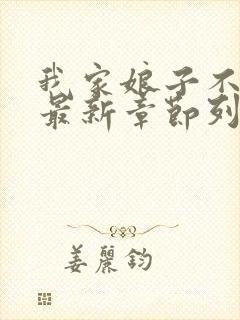 我家娘子不
最新章節列
姜麗鈞